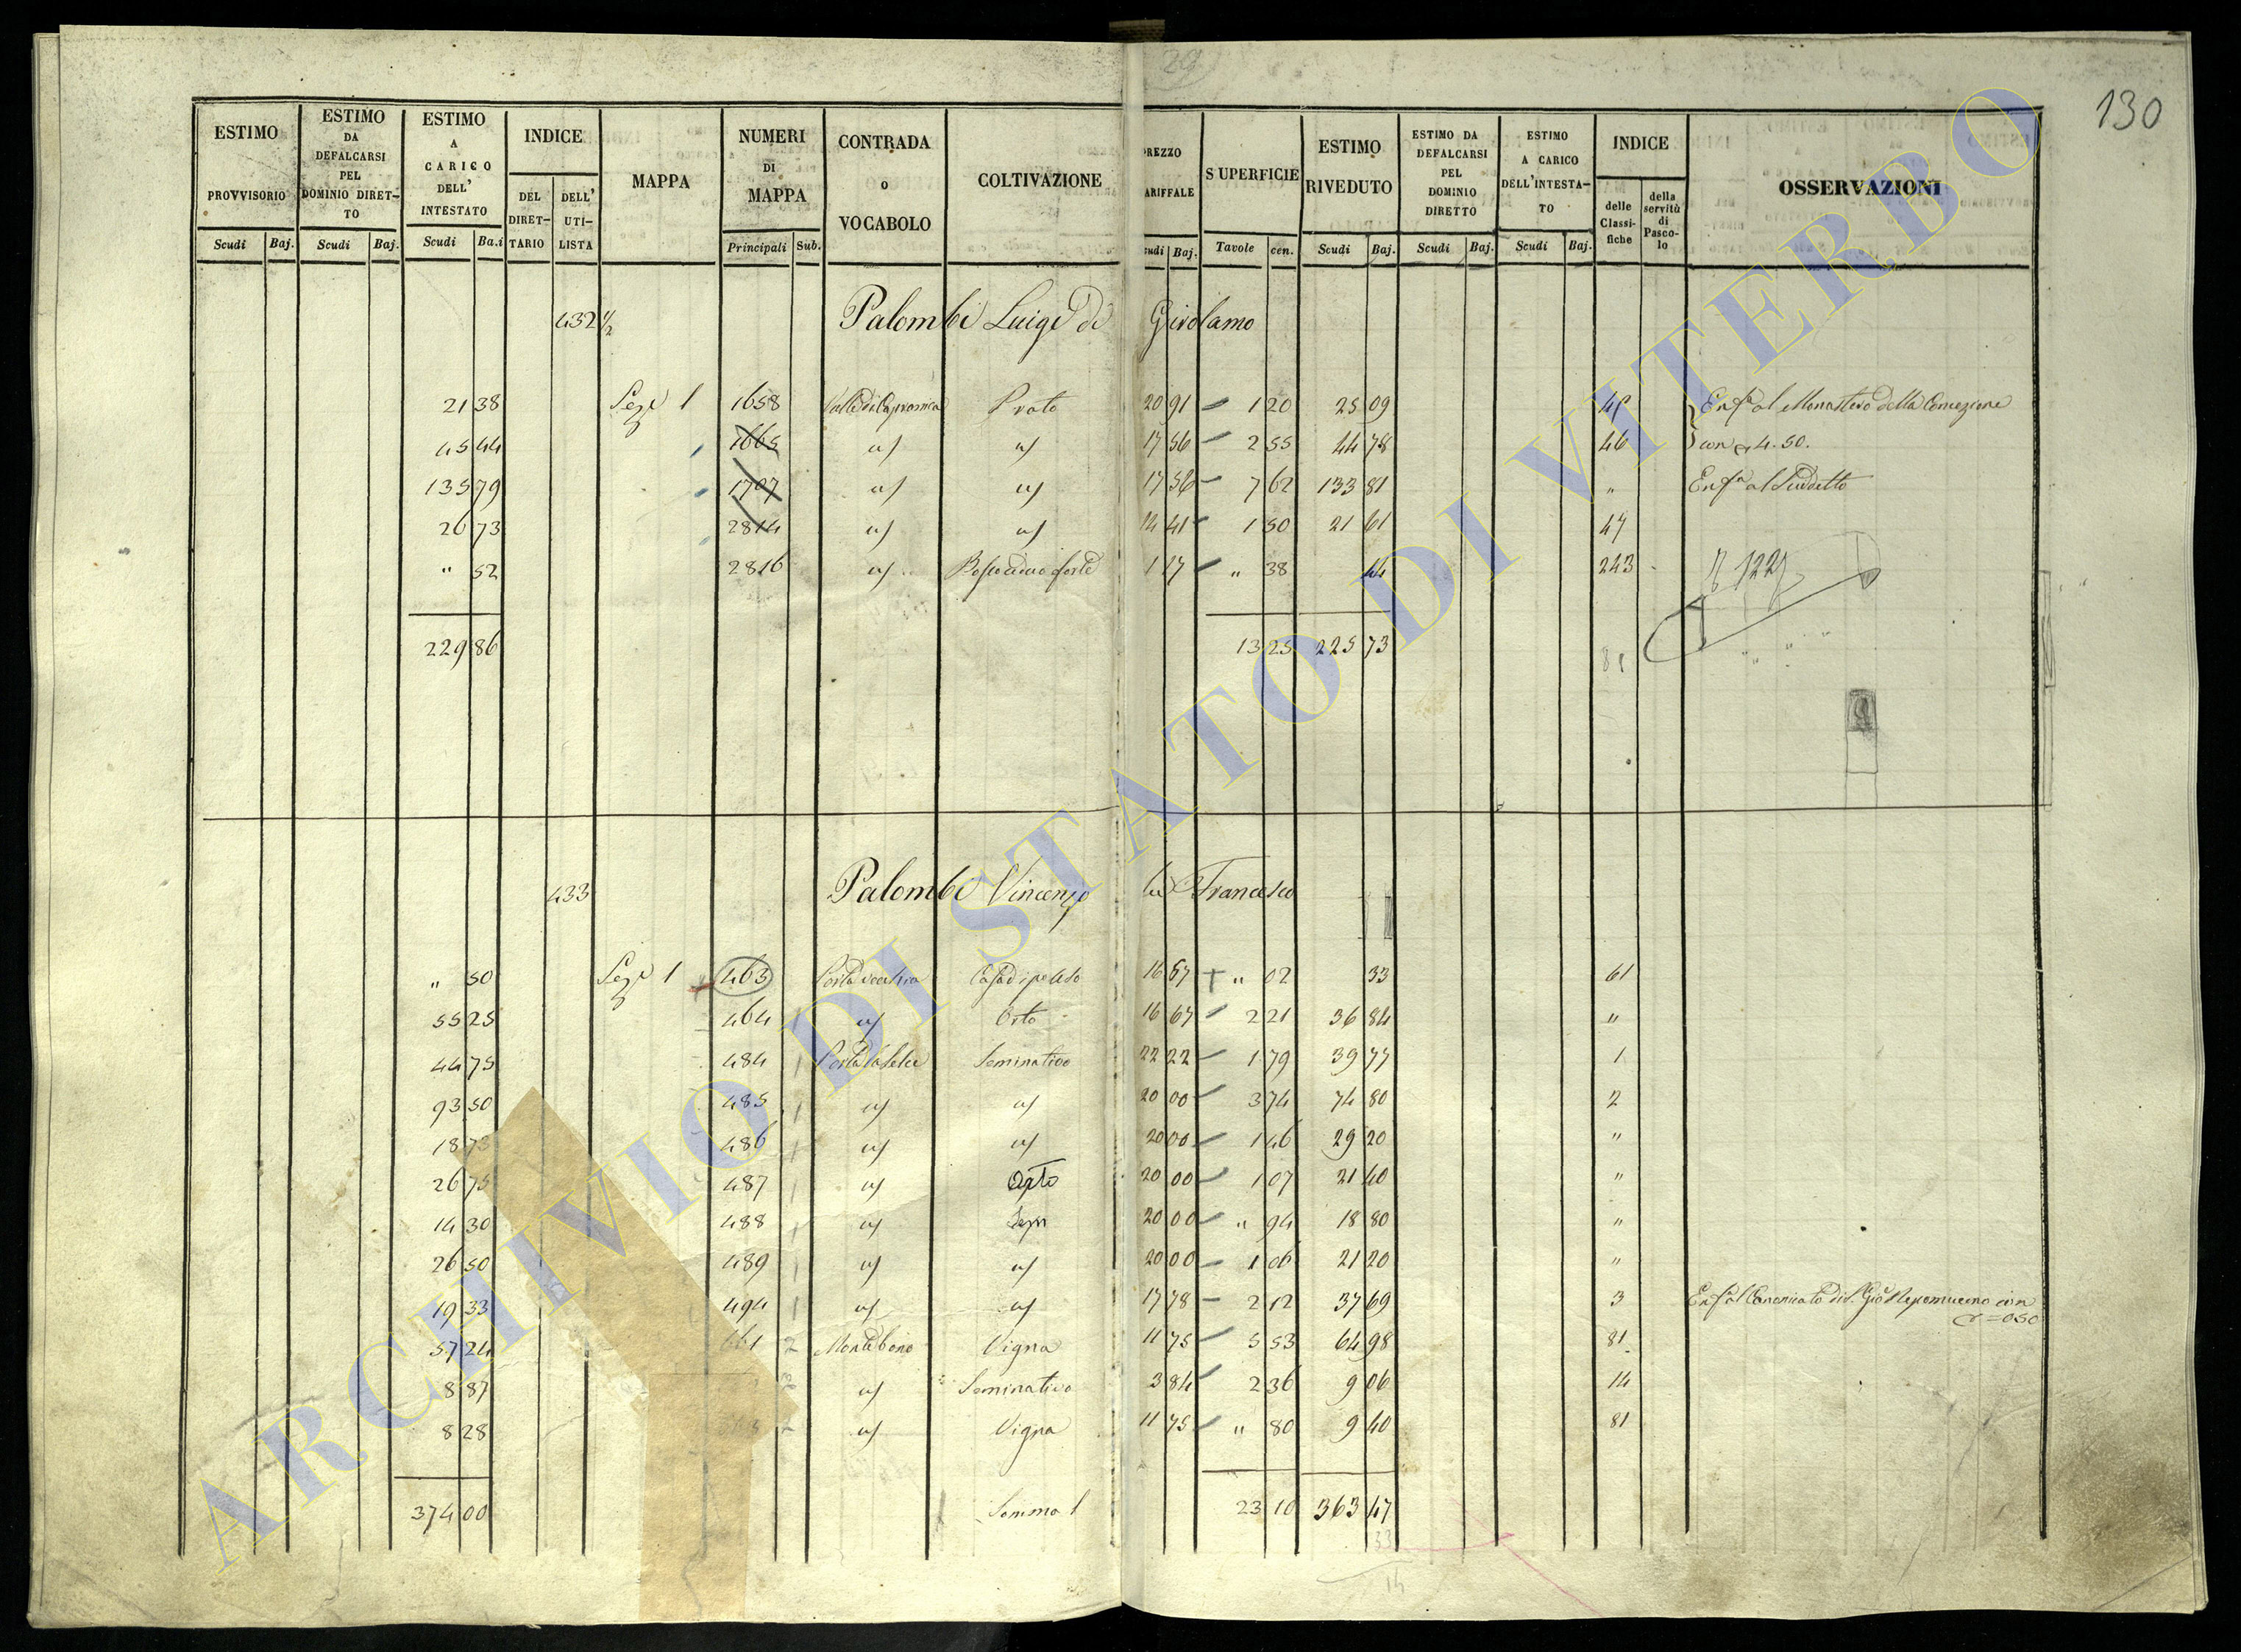 29
130
ESTIMO PROVVISORIO Scudi Baj.
ESTIMO DA DEFALCARSI PEL DOMINIO DIRETTO Scudi Baj.
ESTIMO A CARICO DELL' INTESTATO Scudi Ba.i
INDICE DEL DIRETTARIO DELL' UTILISTA
MAPPA
NUMERI DI MAPPA Principali Sub.
CONTRADA o VOCABOLO
COLTIVAZIONE
REZZO ARIFFALE cudi Baj.
SUPERFICIE Tavole cen.
ESTIMO RIVEDUTO Scudi Baj.
ESTIMO DA DEFALCARSI PEL DOMINIO DIRETTO Scudi Baj.
ESTIMO A CARICO DELL'INTESTATO Scudi Baj.
INDICE delle Classifiche della servitù di Pascolo
OSSERVAZIONI
432 1/2 Palombi Luigi di Girolamo
21 38 Seze 1 1658 Valle di Capranica Prato 20 91 1 20 25 09 45 Enf.a al Monastero della Concezione
45 44 1665 " " 17 56 2 55 44 78 46 con 4.50.
135 79 1707 " " 17 56 7 62 133 81 " Enf.a al Suddetto
26 73 2814 " " 14 41 1 50 21 61 47
" 52 2816 " Bosco ceduo forte 1 17 " 38 44 243
229 86 13 25 225 73
81
433 Palombi Vincenzo fu Francesco
" 50 Seze 1 463 Porta vecchia Casa di poleso 16 67 " 02 33 61
55 25 464 " Orto 16 67 2 21 36 84 "
44 75 484 Porta la Selce Seminativo 22 22 1 79 39 77 1
93 50 485 " " 20 00 3 74 74 80 2
18 73 486 " " 20 00 1 46 29 20 "
26 75 487 " Orto 20 00 1 07 21 40 "
14 30 488 " Sem 20 00 " 94 18 80 "
26 50 489 " " 20 00 1 06 21 20 "
19 33 494 " " 17 78 2 12 37 69 3 Enf. al Canonicato di S. Gio Nepomuceno con 050
57 24 661 2 Monte bono Vigna 11 75 5 53 64 98 81
8 87 " Seminativo 3 84 2 36 9 06 14
8 28 " Vigna 11 75 " 80 9 40 81
374 00 Somma 1 23 10 363 47
33
ARCHIVIO DI STATO DI VITERBO